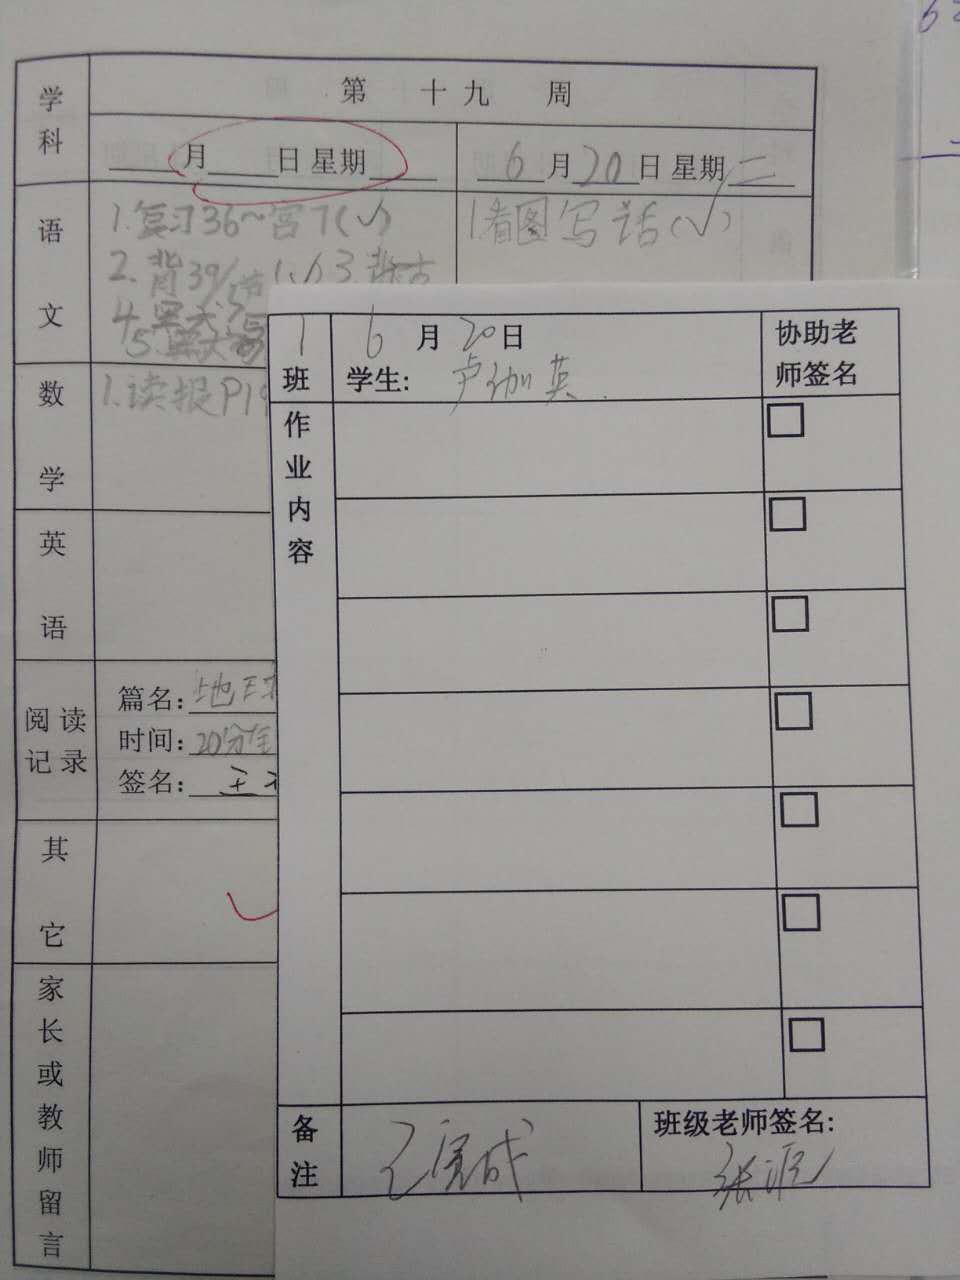 学科
第 十九 周
月 日 星期
6月20日 星期二
语文
1.复习36~
1.看图写话(√)
2.背39
数学
1.读报P19
英语
阅读记录
篇名:地
时间:20分
签名:王
其它
家长或教师留言
1班
6月20日
学生:卢伽英
协助老师签名
作业内容
备注
已完成
班级老师签名:
张